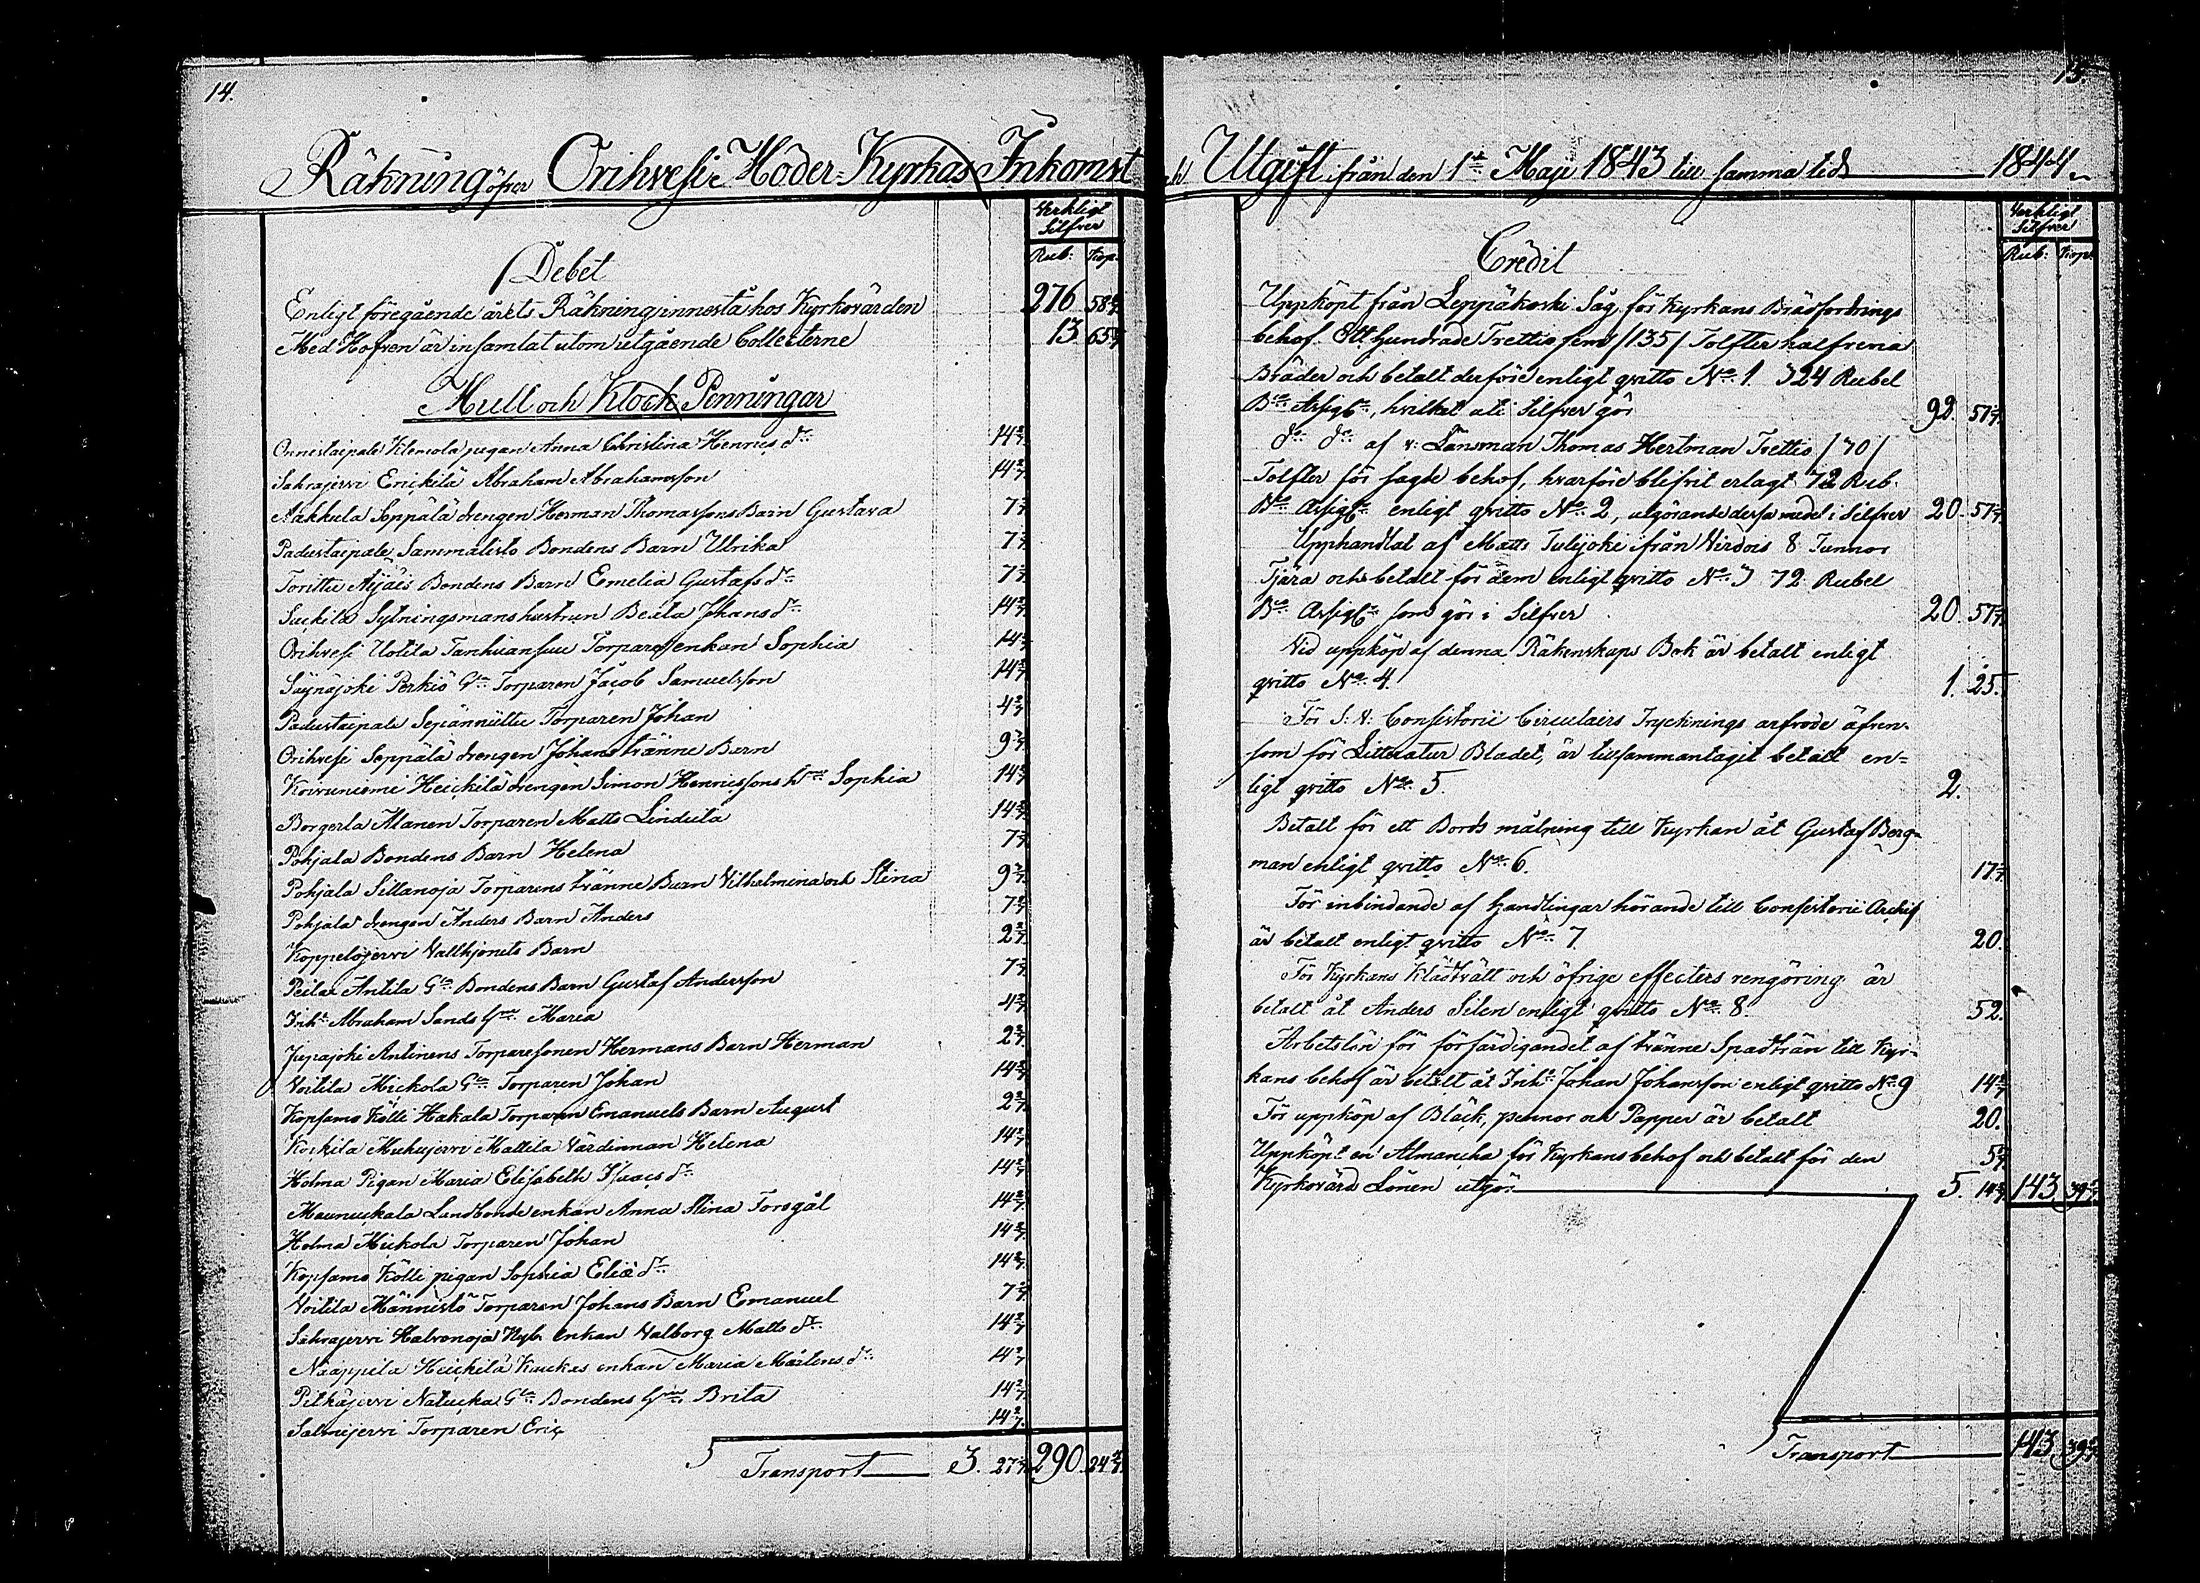 14.
Räkning öfver Orihvesi Moder-Kyrkas Inkomst
Verkligt
Silfver
Rub: Kop.
Debet
Enligt föregående årets Räkning innestå hos Kyrkovärden 276 58 4/7
Med Hofven är insamlat utom utgående Collecterne 13 65 5/7
Mull och Klock Penningar
Onnistaipale Klemola pigan Anna Christina Henrics dr 14 2/7
Sahrajervi Erickilä Abraham Abrahamsson 14 2/7
Nakkula Seppälä drengen Herman Thomassons Barn Gustava 7 1/7
Padustaipale Sammalisto Bondens Barn Ulrika 7 1/7
Torittu Äijäis Bondens Barn Emelia Gustafs dr 7 1/7
Suckila Sytningsmans hustrun Beata Johans dr 14 2/7
Orihvesi Uotila Tanhuansuu Torpare enkan Sophia 14 2/7
Säynäjoki Perkiö Gla Torparen Jacob Samuelsson 14 2/7
Padustaipale Sepänniittu Torparen Johan 4 2/7
Orihvesi Seppälä drengen Johans tvänne Barn 9 2/7
Koivuniemi Heickilä drengen Simon Henricssons h:u Sophia 14 2/7
Borgerla Alanen Torparen Matts Lindula 14 2/7
Pohjala Bondens Barn Helena 7 1/7
Pohjala Sillanoja Torparens tvänne Barn Vilhelmina och Stina 9 2/7
Pohjala drengen Anders Barn Anders 7 1/7
Koppelojervi Vallhjonets Barn 2 2/7
Peila Antila Gla Bondens Barn Gustaf Andersson 7 1/7
Inh:s Abraham Sands Maria 4 2/7
Jupajoki Antinens Torparesonen Hermans Barn Herman 2 2/7
Voitila Mickola Gla Torparen Johan 14 2/7
Kopsamo Kölli Hakala Torparen Emanuels Barn August 2 2/7
Kockila Mukujervi Mattila Värdinnan Helena 14 2/7
Holma Pigan Maria Elisabeth Isaacs dr 14 2/7
Maunuckala Landbonde enkan Anna Stina Forsgål 14 2/7
Holma Mickola Torparen Johan 14 2/7
Kopsamo Kölli pigan Sophia Eliæ dr 14 2/7
Voitila Männistö Torparen Johans Barn Emanuel 7 1/7
Sahrajervi Halvonoja Nyb. enkan Valborg Matts dr 14 2/7
Näappila Heickilä Kauckas enkan Maria Mårtens dr 14 2/7
Pitkäjervi Natucka Gla Bondens Brita 14 2/7
Salmijervi Torparen Eric 14 2/7
Transport 3. 27 290. 24 2/7
15.
och Utgift från den 1sta Maji 1843 till samma tid 1844
Verkligt
Silfver
Rub: Kop.
Credit
Uppköpt från Leppäkoski Såg för Kyrkans Brädfordrings
behof Ett hundrade Trettio fem /135/ Tolfter halfrena
Bräder och betalt derföre enligt qvitto No 1. 324 Rubel
Bco Assigte, hvilket uti Silfver gör 92. 57 1/7
do do af v: Länsman Thomas Hertman Trettio /30/
Tolfter för sagde behof, hvarföre blifvit erlagt 72 Rub.
Bco Assigte enligt qvitto No 2, utgörande dessa medel i Silfver 20. 57 1/7
Upphandlat af Matts Tulijoki ifrån Virdois 8 Tunnor
Tjära och betalt för dem enligt qvitto No 3 72 Rubel
Bco Assigte som gör i Silfver 20. 57 1/7
Vid uppköp af denna Räkenskaps Bok är betalt enligt
qvitto No 4. 1. 25.
För S: V: Consistorii Circulairs Trycknings arfvode äfven-
som för Litteratur Bladet, är tillsammantagit betalt en=
ligt qvitto No 5. 2.
Betalt för ett Bords målning till Kyrkan åt Gustaf Berg=
man enligt qvitto No 6. 17 1/7
För inbindande af Handlingar hörande till Consistorii Archif
är betalt enligt qvitto No 7. 20.
För Kyrkans Klädtvätt och öfrige effecters rengöring är
betalt åt Anders Silen enligt qvitto No 8. 52.
Arbetslön för förfärdigandet af tvänne Spadträn till Kyr-
kans behof är betalt åt Inh:s Johan Johansson enligt qvitto No 9 14 2/7
För uppköp af Bläck, pennor och Papper är betalt 20.
Uppköpt en Almancha för Kyrkans behof och betalt för den 5 5/7
Kyrkovärds Lönen utgör 5. 14 2/7 143 39 2/7
Transport 143 39 2/7